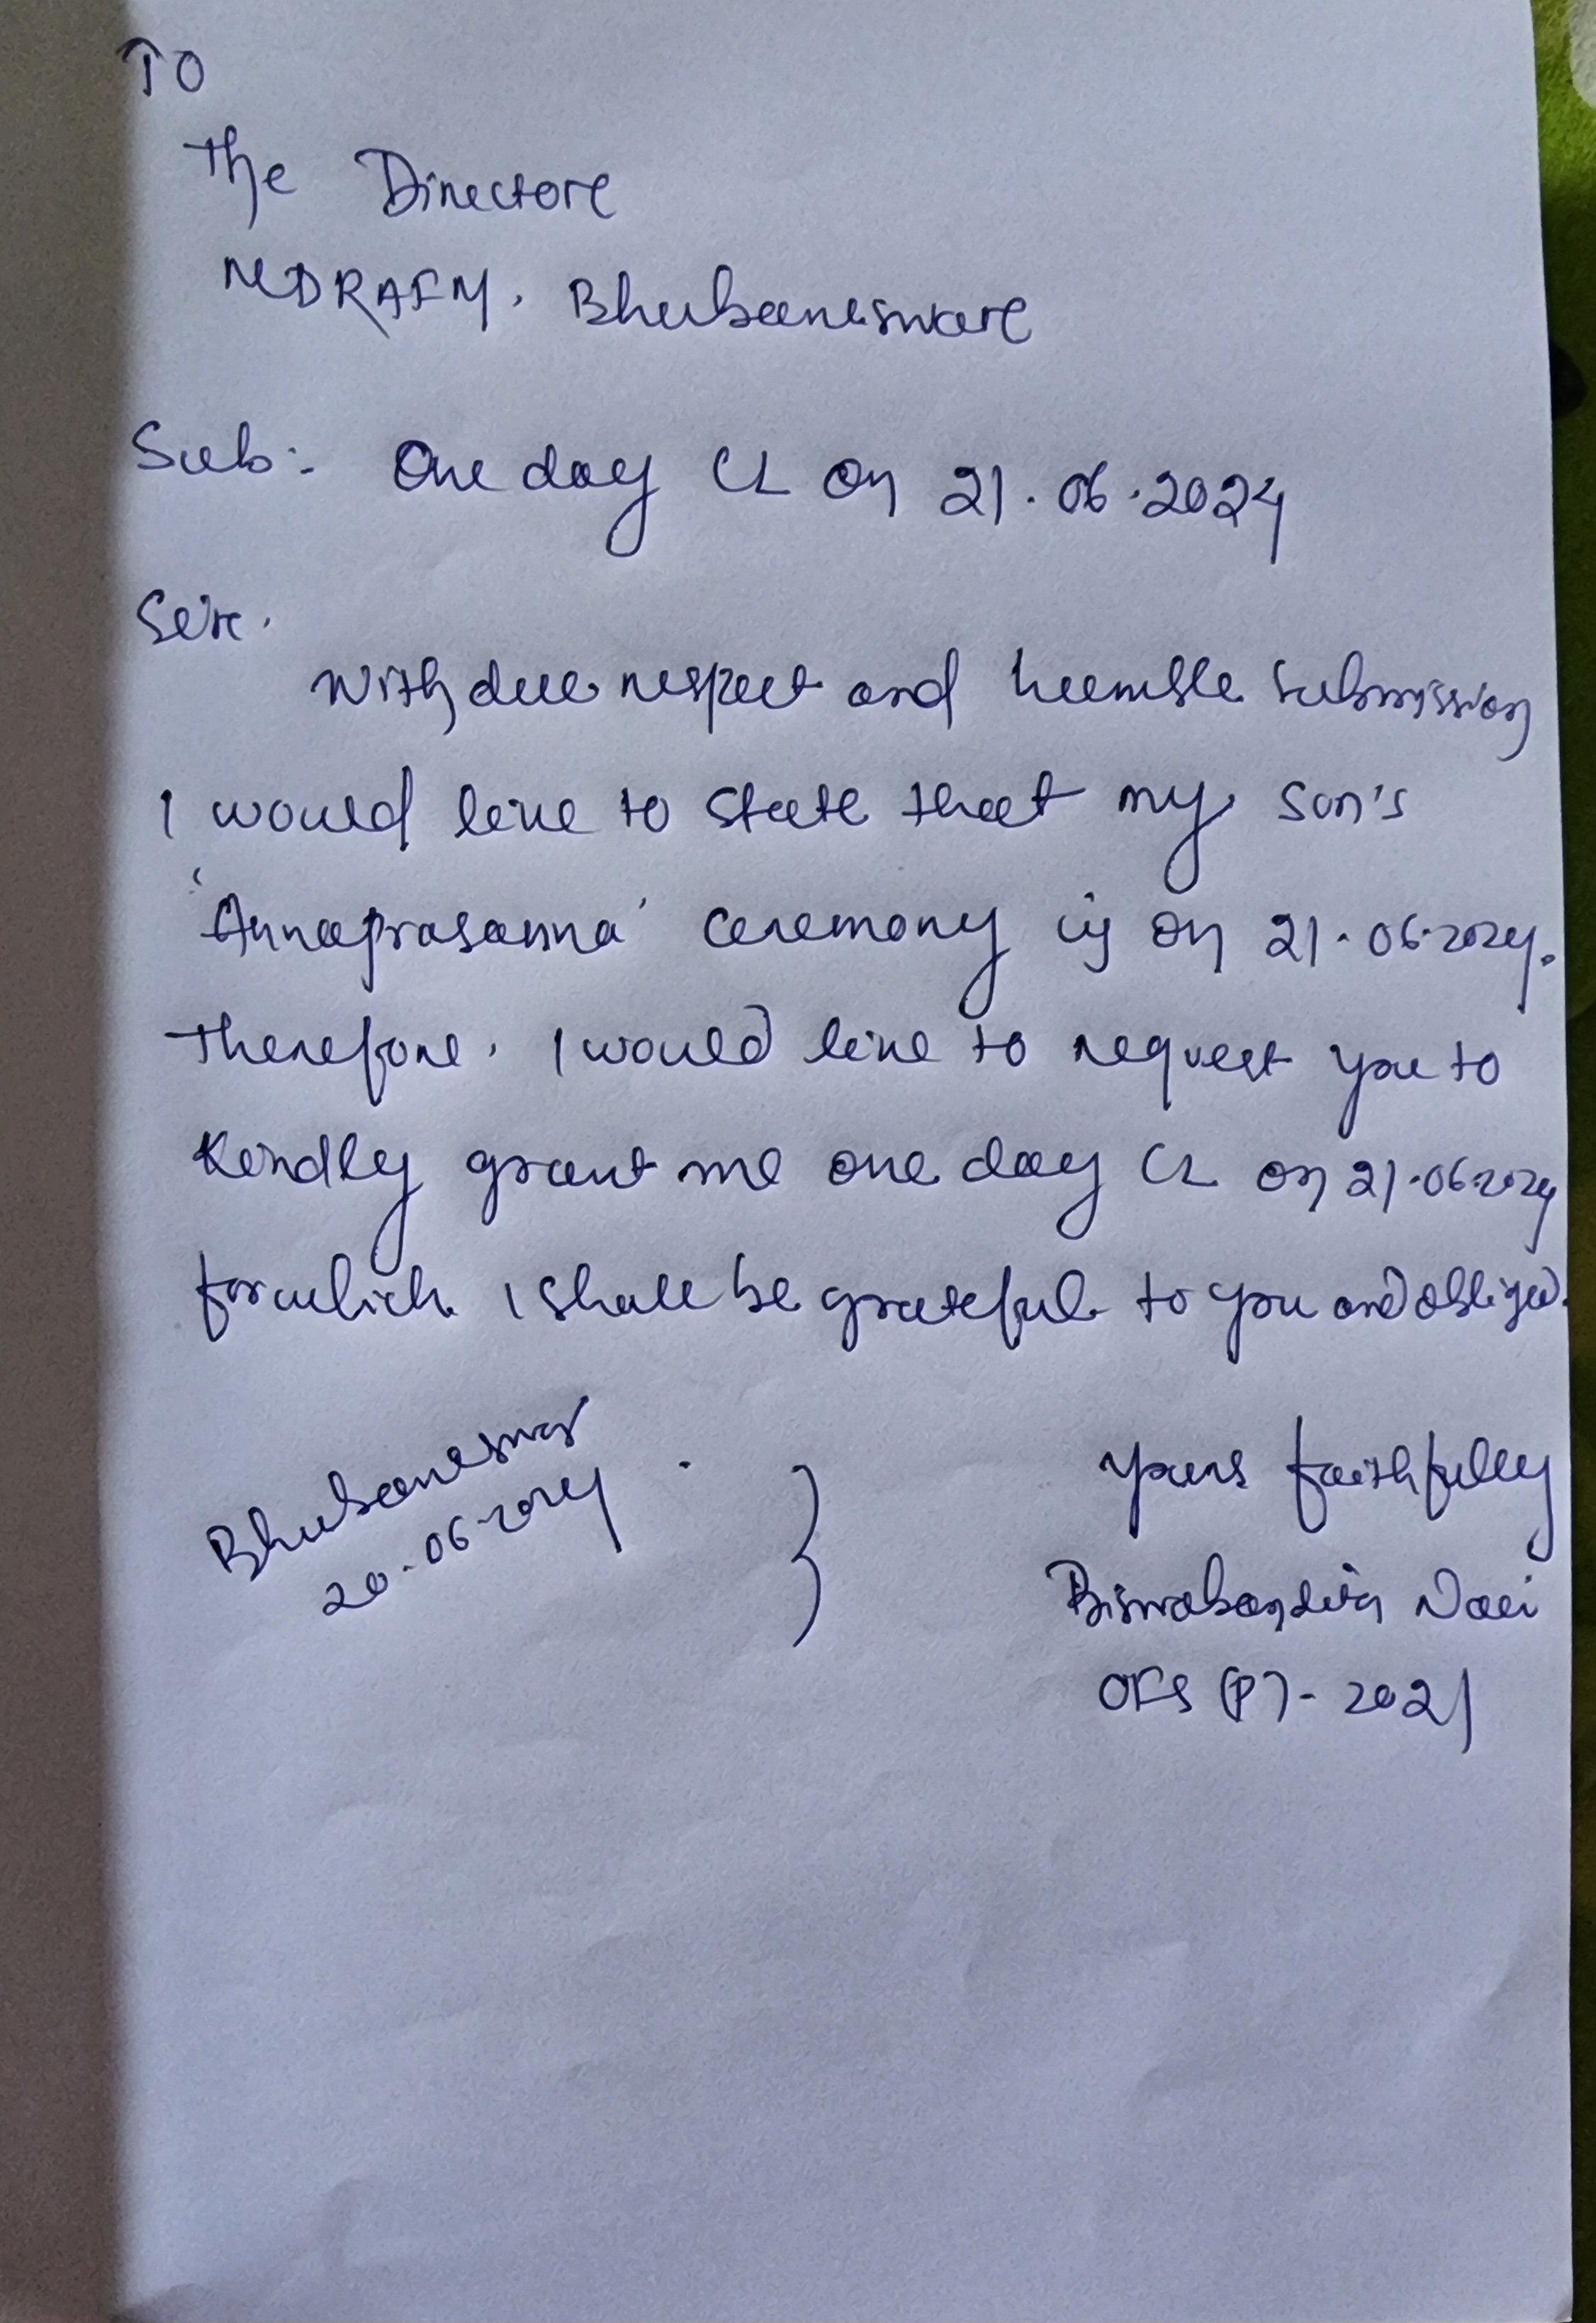 To
The Director
MDRAFM, Bhubaneswar
Sub:- One day CL on 21.06.2024
Sir,
With due respect and humble submission
I would like to state that my son's
'Annaprasanna' ceremony is on 21.06.2024.
Therefore, I would like to request you to
kindly grant me one day CL on 21.06.2024
for which I shall be grateful to you and obliged.
Bhubaneswar
20.06.2024
Yours faithfully
OFS (P)- 2021